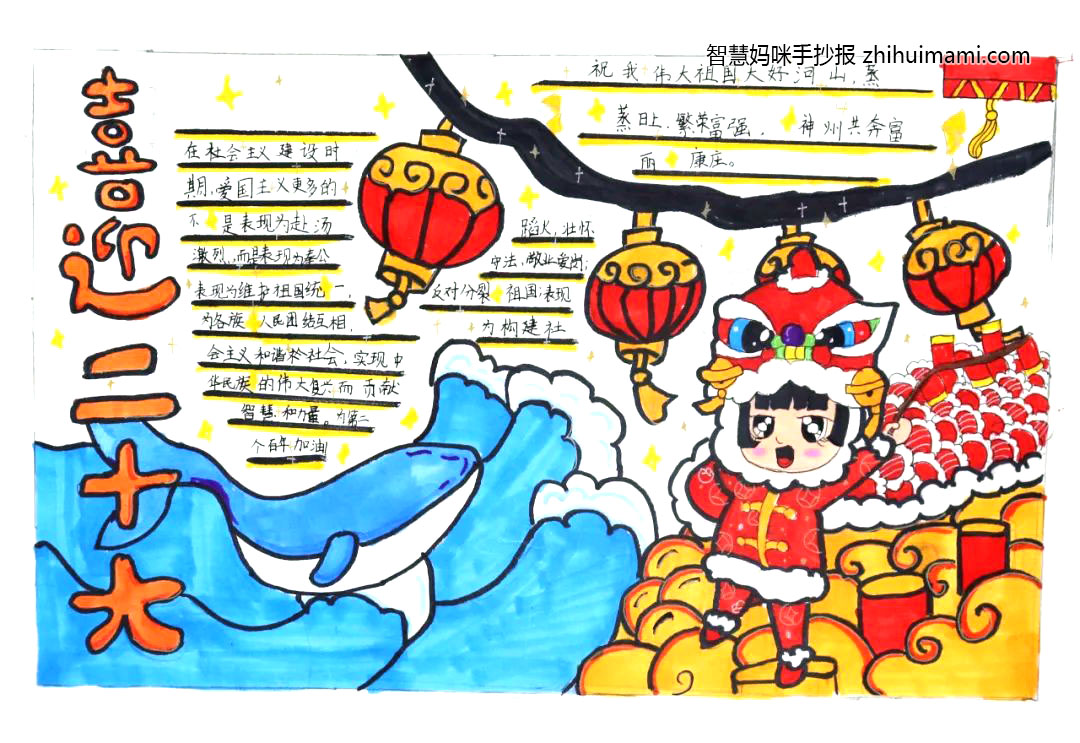 智慧妈咪手抄报 zhihuimami.com
喜迎二十大
祝我伟大祖国大好河山,蒸
蒸日上.繁荣富强. 神州共奔富
丽 康庄。
在社会主义建设时
期,爱国主义更多的
不是表现为赴汤
蹈火,壮怀
激烈,而是表现为奉公
守法,敬业爱岗;
表现为维护祖国统一,
反对分裂 祖国:表现
为各族人民团结互相,
为构建社
会主义和谐社会,实现中
华民族的伟大复兴而贡献
智慧.和力量。为第二
个百年加油